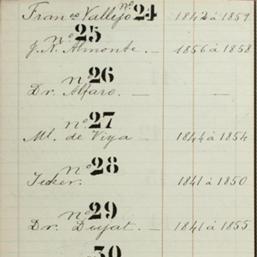 Nº 24
Franco Vallejo 1842 á 1859
Nº 25
J. N. Almonte. — 1856 á 1858
nº 26
Dr. Alfaro. —
nº 27
Ml. de Viya — 1844 á 1854
nº 28
Tecker. 1841 á 1850
nº 29
Dr. Dujat. — 1841 á 1855
30